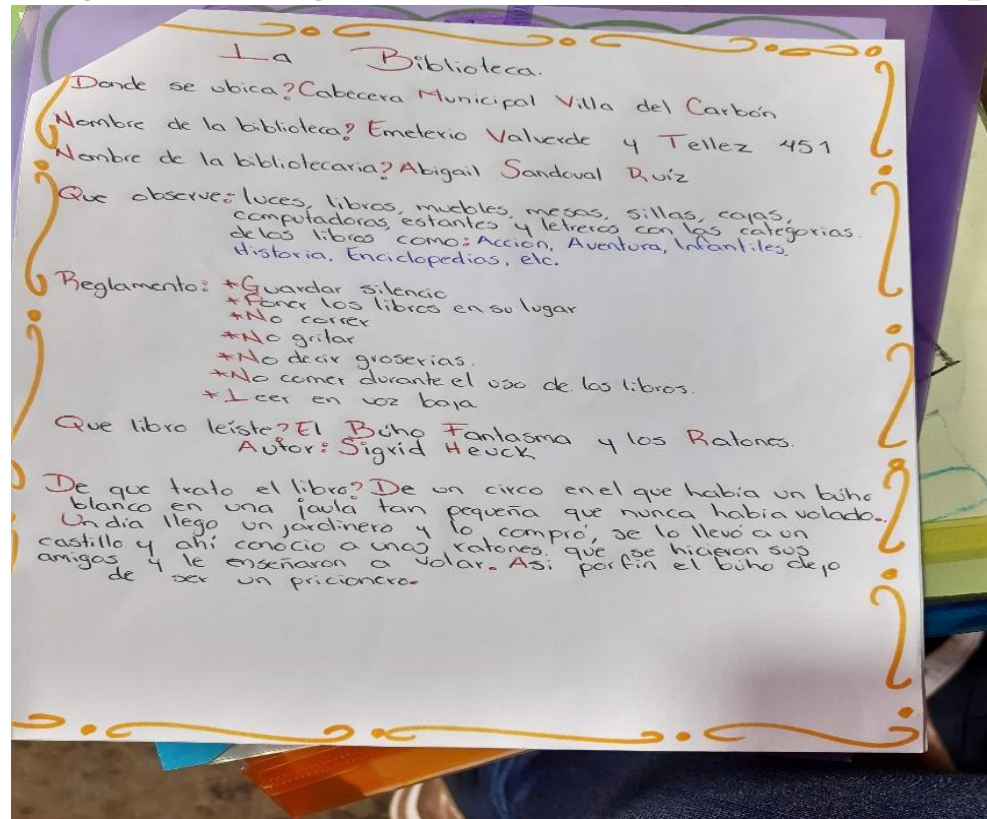 La Biblioteca.
Donde se ubica? Cabecera Municipal Villa del Carbón
Nombre de la biblioteca? Emeterio Valverde y Tellez 451
Nombre de la bibliotecaria? Abigail Sandoval Ruíz
Que observe: luces, libros, muebles, mesas, sillas, cajas,
computadoras, estantes y letreros con las categorias
de los libros como: Acción, Aventura, Infantiles,
Historia, Enciclopedias, etc.
Reglamento: *Guardar silencio
*Poner los libros en su lugar
*No correr
*No gritar
*No decir groserias.
*No comer durante el uso de los libros.
*Leer en voz baja
Que libro leíste? El Búho Fantasma y los Ratones.
Autor: Sigrid Heuck
De que trato el libro? De un circo en el que había un búho
blanco en una jaula tan pequeña que nunca había volado.
Un día llego un jardinero y lo compró, se lo llevó a un
castillo y ahí conocio a unos ratones, que se hicieron sus
amigos y le enseñaron a volar. Asi por fin el búho dejo
de ser un pricionero.